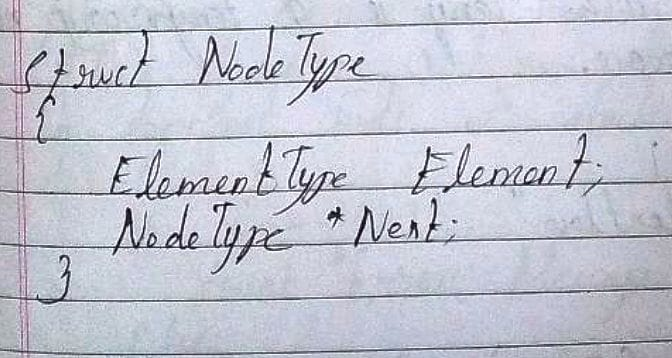 Struct NodeType
{
ElementType Element;
NodeType *Next;
}